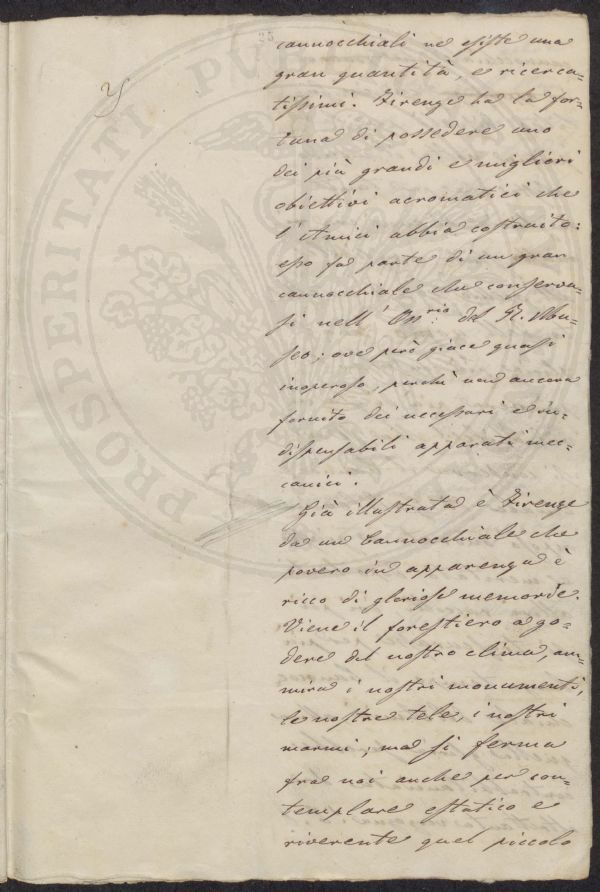 25
cannocchiali ne esiste una
gran quantità, e ricerca-
tissimi. Firenze ha la for-
tuna di possedere uno
dei più grandi e migliori
obiettivi acromatici che
l'Amici abbia costruito:
esso fa parte di un gran
cannocchiale che conserva-
si nell'Oss.rio del R. Mu-
seo; ove però giace quasi
inoperoso, perchè non ancora
fornito dei necessari ed in-
dispensabili apparati mec-
canici.
Già illustrata è Firenze
da un Cannocchiale che
povero in apparenza è
ricco di gloriose memorie.
Viene il forestiero a go-
dere del nostro clima, am-
mira i nostri monumenti,
le nostre tele, i nostri
marmi; ma si ferma
fra noi anche per con-
templare estatico e
riverente quel piccolo
PROSPERITATI